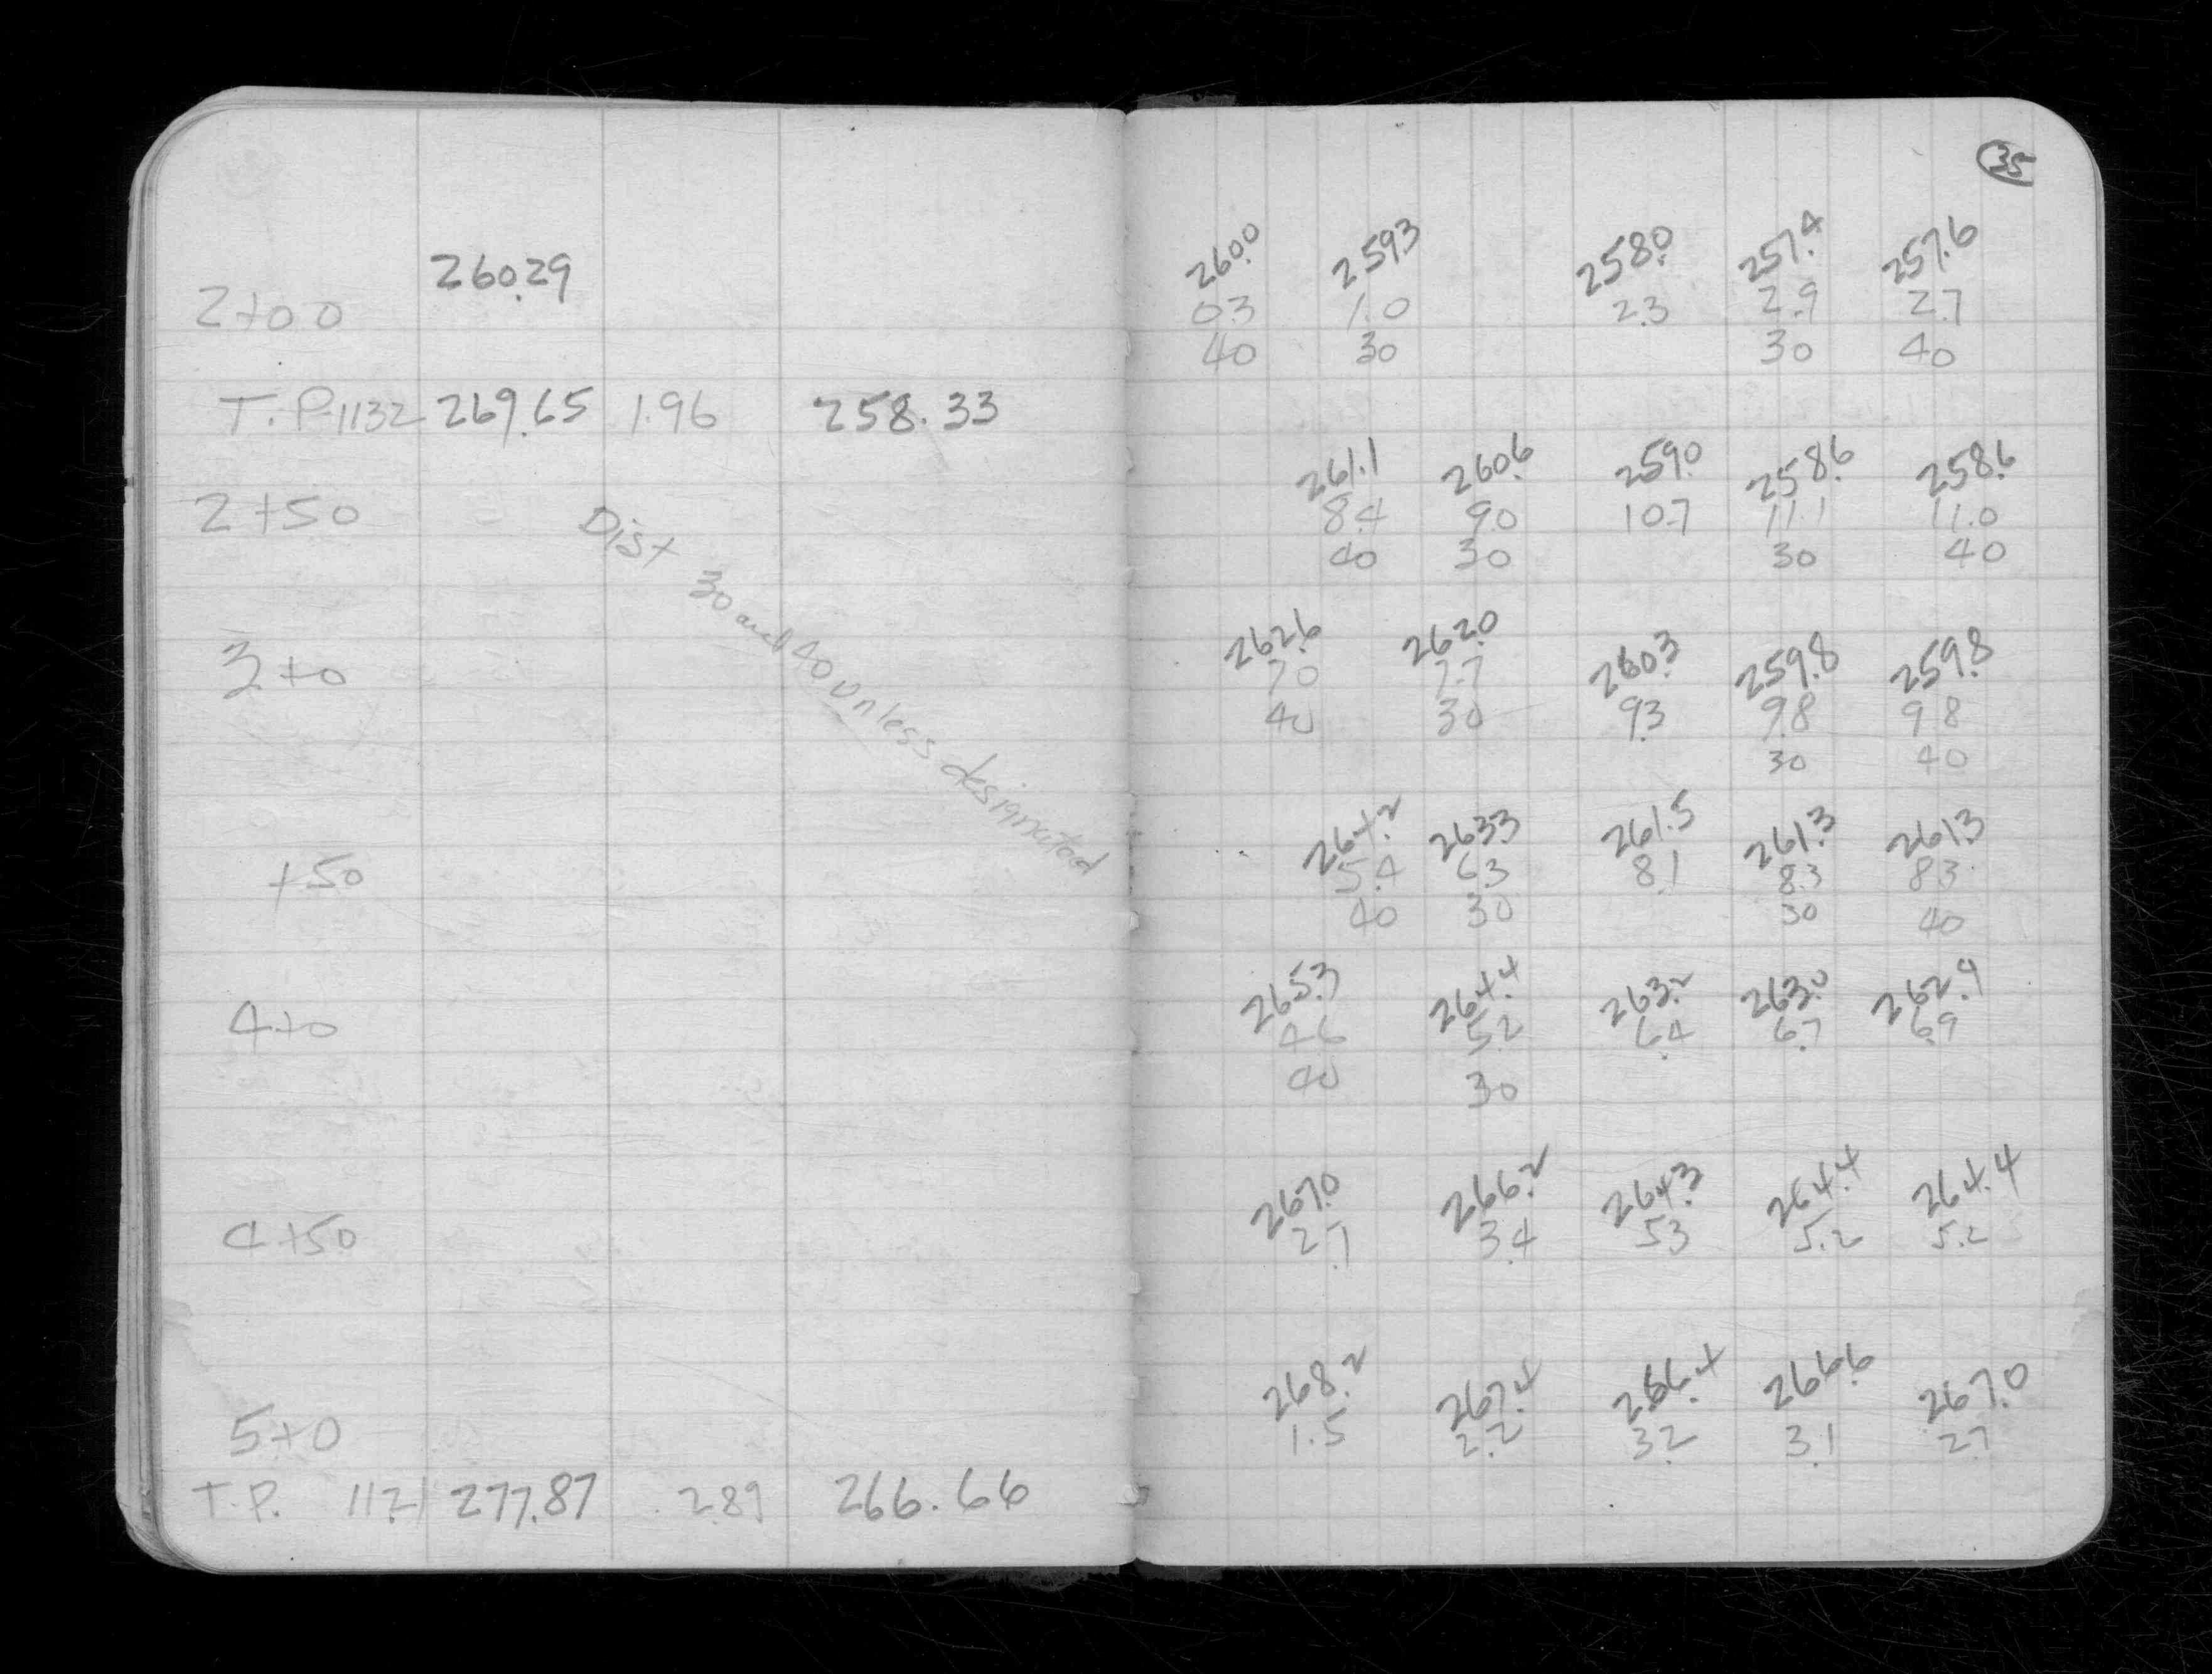 35
260.29
2+00
260.0 259.3 258.0 257.4 257.6
0.3 1.0 2.3 2.9 2.7
40 30 30 40
T.P. 11.32 269.65 1.96 258.33
261.1 260.6 259.0 258.6 258.6
2+50
8.4 9.0 10.7 11.1 11.0
40 30 30 40
Dist 30 and 40 unless designated
262.6 262.0 260.3 259.8 259.8
3+0
7.0 7.7 9.3 9.8 9.8
40 30 30 40
264.2 263.3 261.5 261.3 261.3
+50
5.4 6.3 8.1 8.3 8.3
40 30 30 40
265.3 264.4 263.2 263.0 262.9
4+0
4.6 5.2 6.4 6.7 6.9
40 30
267.0 266.2 264.3 264.4 264.4
4+50
2.7 3.4 5.3 5.2 5.2
268.2 267.4 266.4 266.6 267.0
5+0
1.5 2.2 3.2 3.1 2.7
T.P. 11.21 277.87 2.89 266.66